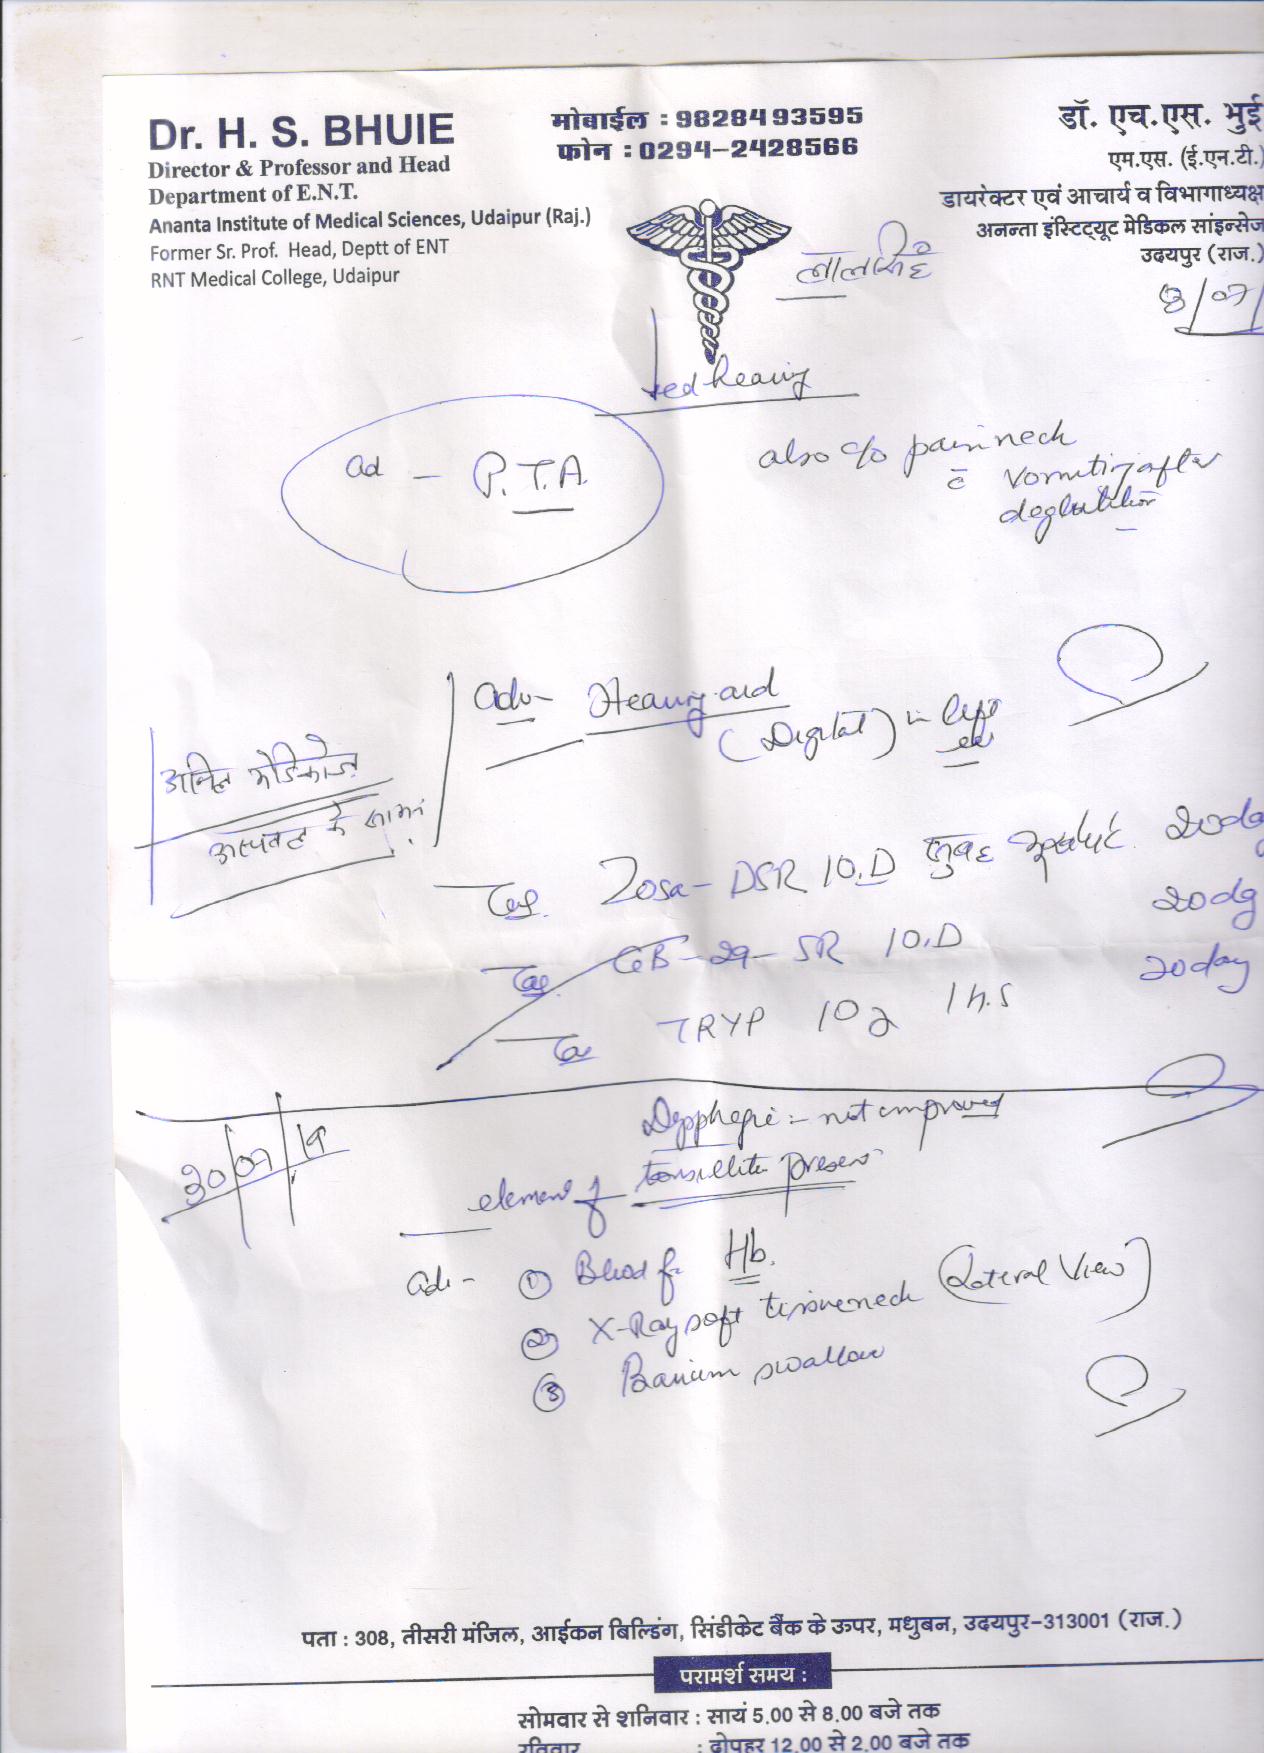 Dr. H. S. BHUIE
Director & Professor and Head
Department of E.N.T.
Ananta Institute of Medical Sciences, Udaipur (Raj.)
Former Sr. Prof. Head, Deptt of ENT
RNT Medical College, Udaipur
मोबाईल : 9828493595
फोन : 0294-2428566
डॉ. एच.एस. भुई
एम.एस. (ई.एन.टी.)
डायरेक्टर एवं आचार्य व विभागाध्यक्ष
अनन्ता इंस्टिट्यूट मेडिकल साइन्सेज
उदयपुर (राज.)
लालसिंह
/07/
hearing
ad - P.T.A.
also c/o pain neck
c̄ vomiting after
deglutition
adv- Hearing aid
(Digital) in left
ear
अनिल मेडिकोज
अस्पताल के सामने
Zosa- DSR 10.D सुबह 20da
GB-29-SR 10.D 20dy
TRYP 10 1 h.s 20day
30/07/19
Dysphagia :- not improved
element of tonsillitis present
adv- ① Blood for Hb.
② X-Ray soft tissue neck (Lateral View)
③ Barium swallow
पता : 308, तीसरी मंजिल, आईकन बिल्डिंग, सिंडीकेट बैंक के ऊपर, मधुबन, उदयपुर-313001 (राज.)
परामर्श समय :
सोमवार से शनिवार : सायं 5.00 से 8.00 बजे तक
रविवार : दोपहर 12.00 से 2.00 बजे तक